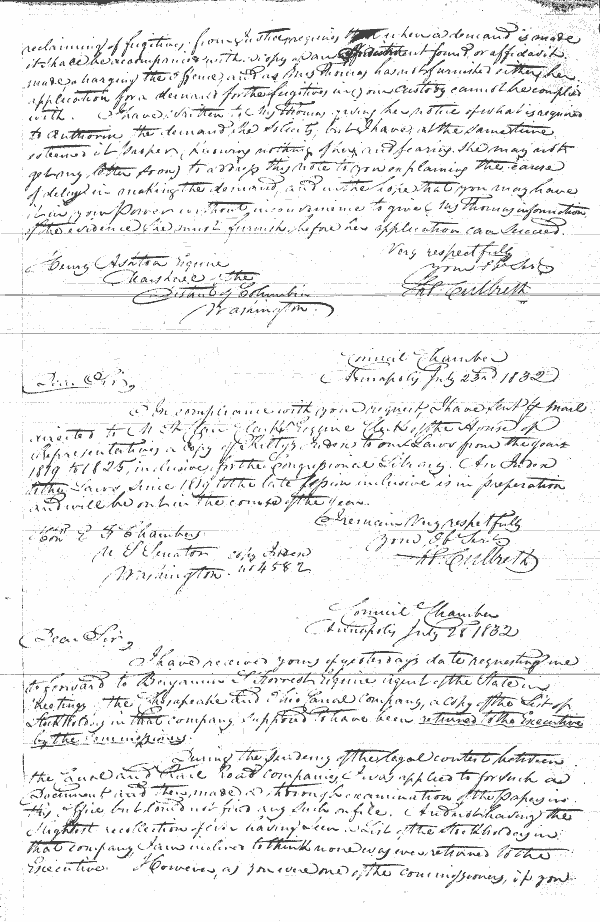 reclaiming of fugitives from Justice requires that when a demand is made
it shall be accompanied with a copy of an Indictment found or affidavit
made charging the offence, and as Mrs Thomas has not furnished either, her
application for a demand for the fugitives in your Custody cannot be complied
with. I have written to Mrs Thomas giving her notice of what is required
to authorize the demand she solicits, but I have at the same time
esteemed it proper, knowing nothing of her, and fearing she may not
get my letter soon, to address this note to you explaining the cause
of delay in making the demand, and in the hope that you may have
it in your Power without inconvenience to give Mrs Thomas information
of the evidence she must furnish before her application can succeed.
Very respectfully
your Ob Servt
Th. Culbreth
Henry Ashton Esquire
Marshall of the
District of Columbia
Washington.
Council Chamber
Annapolis July 23rd 1832
Dear Sir,
In compliance with your request I have sent by mail
directed to M St Clair Clarke Esquire Clerk of the House of
Representatives a copy of Index to our Laws from the years
1819 to 1825, inclusive, for the Congressional Library. An Index
to the Laws since 1819 to the late session inclusive is in preparation
and will be out in the course of the year.
I remain Very respectfully
your Ob Servt
Th. Culbreth
Honl E F Chambers
U S Senator
Washington
copy Index
no 4582
Council Chamber
Annapolis July 28 1832
Dear Sir,
I have received yours of yesterdays date requesting me
to forward to Benjamin S Forrest Esquire agent of the State in
meetings of the Chesapeake and Ohio Canal Company, a copy of the List of
Stockholders in that company supposed to have been returned to the Executive
by the commissioners.
During the pendency of the legal contest between
the Canal and Rail Road companies, I was applied to for such a
Document and then made a thorough examination of the Papers in
this office but could not find any such on file. And not having the
slightest recollection of ever having seen a List of the Stockholders in
that company I am inclined to think none was ever returned to the
Executive. However, as you were one of the commissioners, if you